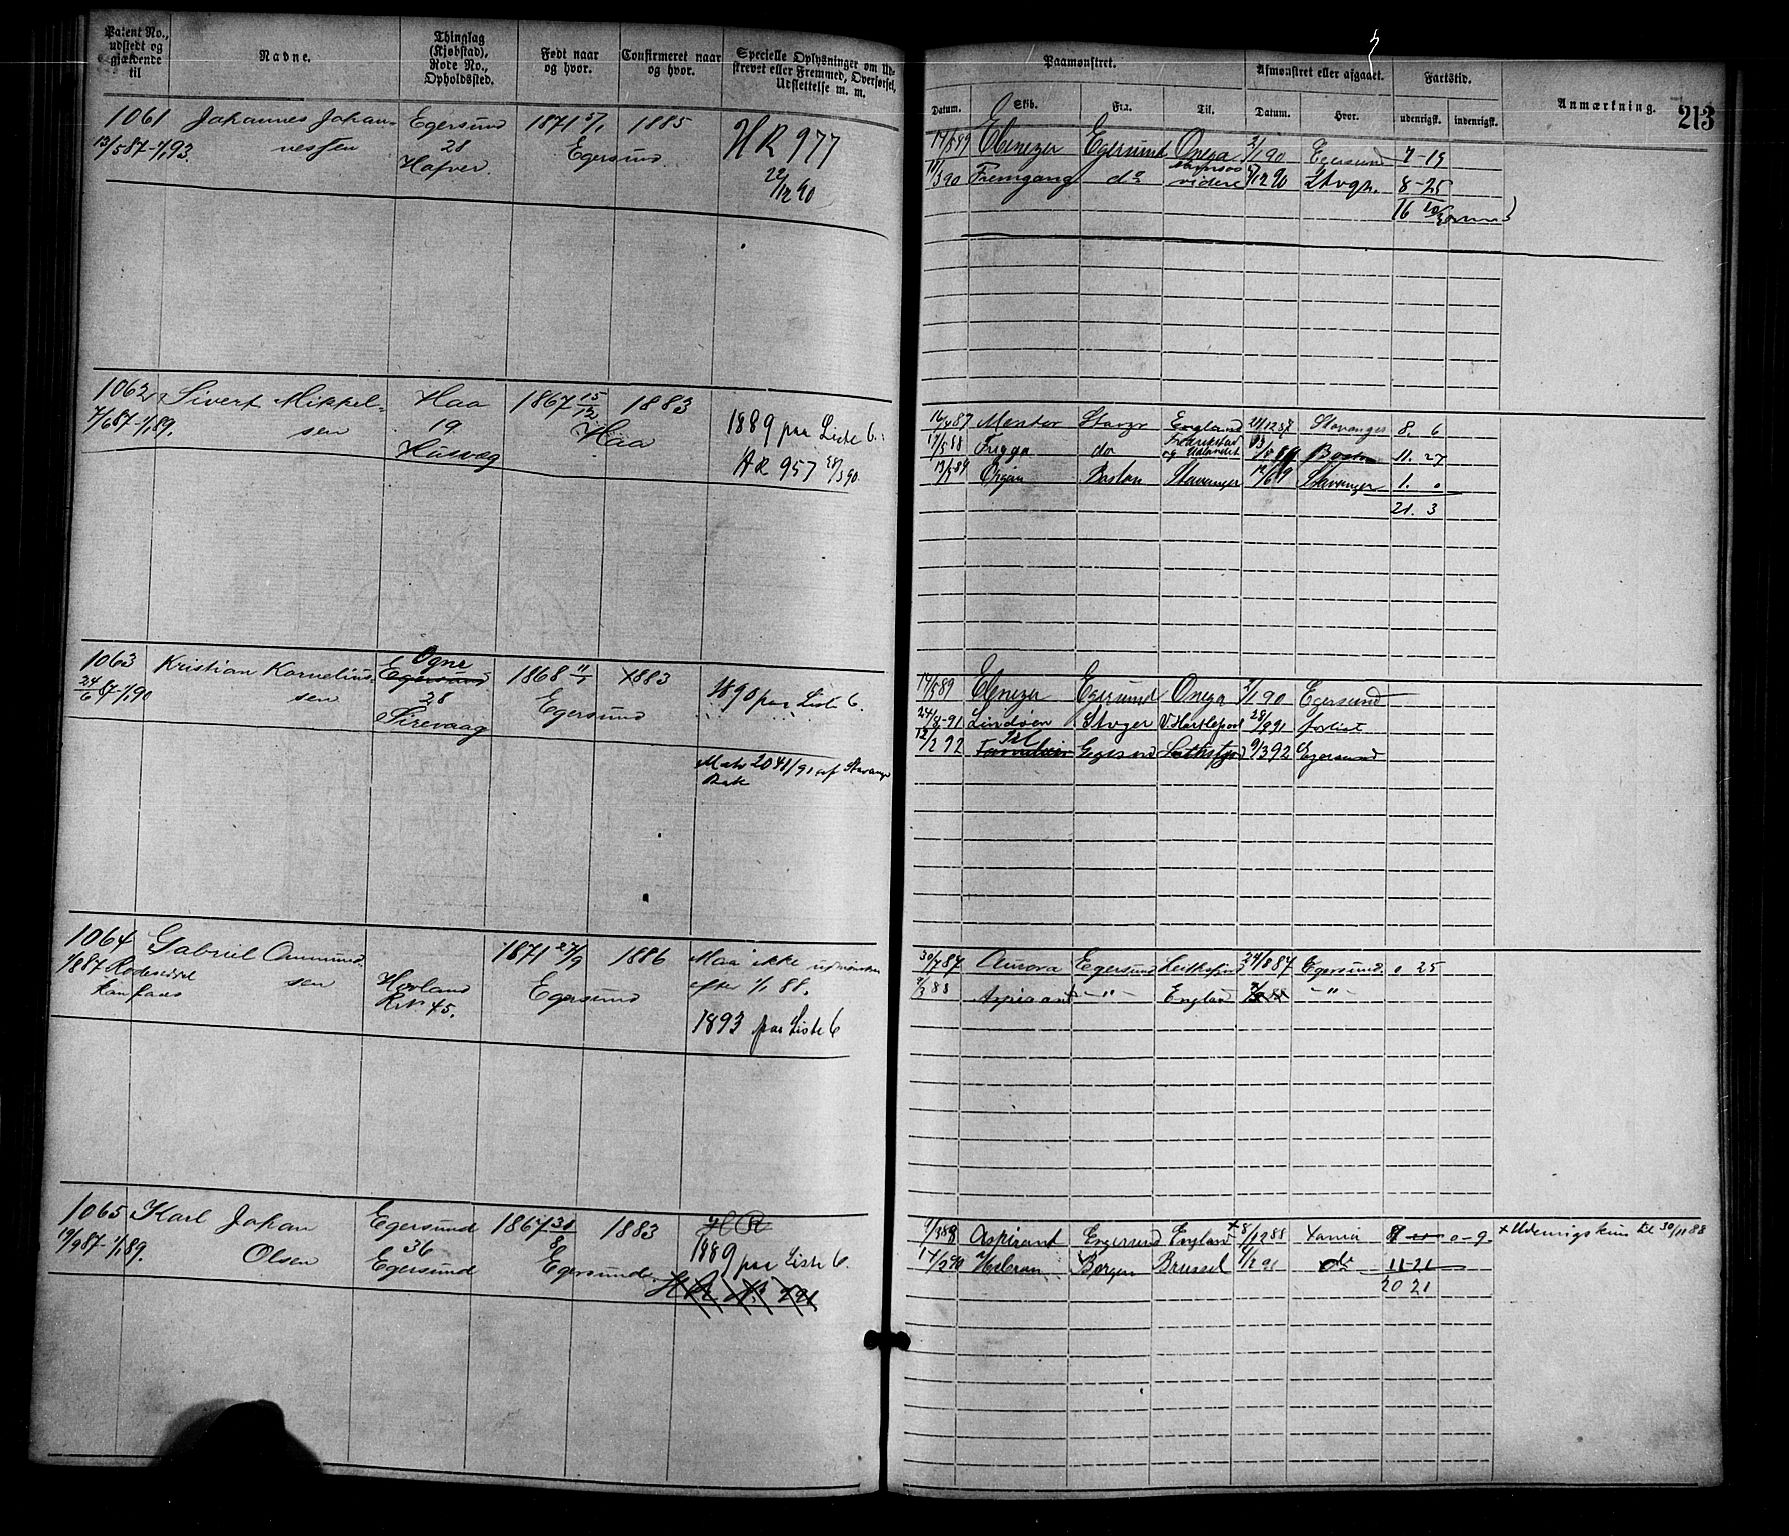 Patent No., udstedt og gjældende til
Navne.
Thinglag (Kjøbstad), Rode No., Opholdssted.
Født naar og hvor.
Confirmeret naar og hvor.
Specielle Oplysninger om Udskrevet eller Fremmed, Overførsel, Udslettelse m. m.
Paamønstret.
Afmønstret eller afgaaet.
Fartstid.
Anmærkning.
213
Datum.
Skib.
Fra.
Til.
Datum.
Hvor.
udenrigsk.
indenrigsk.
1061 Johannes Johan- Egersund 1871 5/1 1885 HR 977
13/5 87-1/1 93. nessen 28 Egersund
Hafver. 22/12 90
17/5 89 Ebenezer Egersund Onega 2/1 90 Egersund 7-15
11/3 90 Fremgang do videre 5/12 90 Stvgr. 8-25
16 10
1062 Sivert Mikkel- Haa 1867 15/12 1883 1889 paa Liste 6.
7/6 87-1/1 89. sen 19 Haa
Husvæg HR 957 28/3 90
16/4 87 Mentor Stavgr England 21/12 87 Stavanger 8. 6
17/5 88 Frigga do Fredrikstad og Udlandet Boston 11. 27
13/5 89 Boston Stavanger 12/6 89 Stavanger 1. 0
21. 3
1063 Kristian Kornelius- Ogne Egersund 1868 11/1 1883 1890 paa Liste 6.
24/6 87-1/1 90 sen 28 Egersund
Sirevaag
Matr 2041/91 af Stavanger
17/5 89 Ebenezer Egersund Onega 2/1 90 Egersund
24/8-91 Lindöen Stvger V. Hartlepool 28/9 91 forlist
12/2 92 Egersund 9/3 92 Egersund
1064 Gabriel Ommund- 1871 27/9 1886 Maa ikke udmönstres
1/8 87 Rodeseddel sen Hovland Egersund efter 1/1 88.
Rn. 45. 1893 paa Liste 6
30/7 87 Aurora Egersund 24/8 87 Egersund 0 25
88 Aspirant -"- England -"-
1065 Karl Johan Egersund 1867 30/8 1883 HR
19/9 87-1/1 89. Olsen 36 Egersund 1889 paa Liste 6.
Egersund
HR No 291
Aspirant Egersund England + 8/12 88 Xania 0-9 + Udenrigs kun til 30/11 88
17/2 90 Bergen Brussel do 11-21
20 21